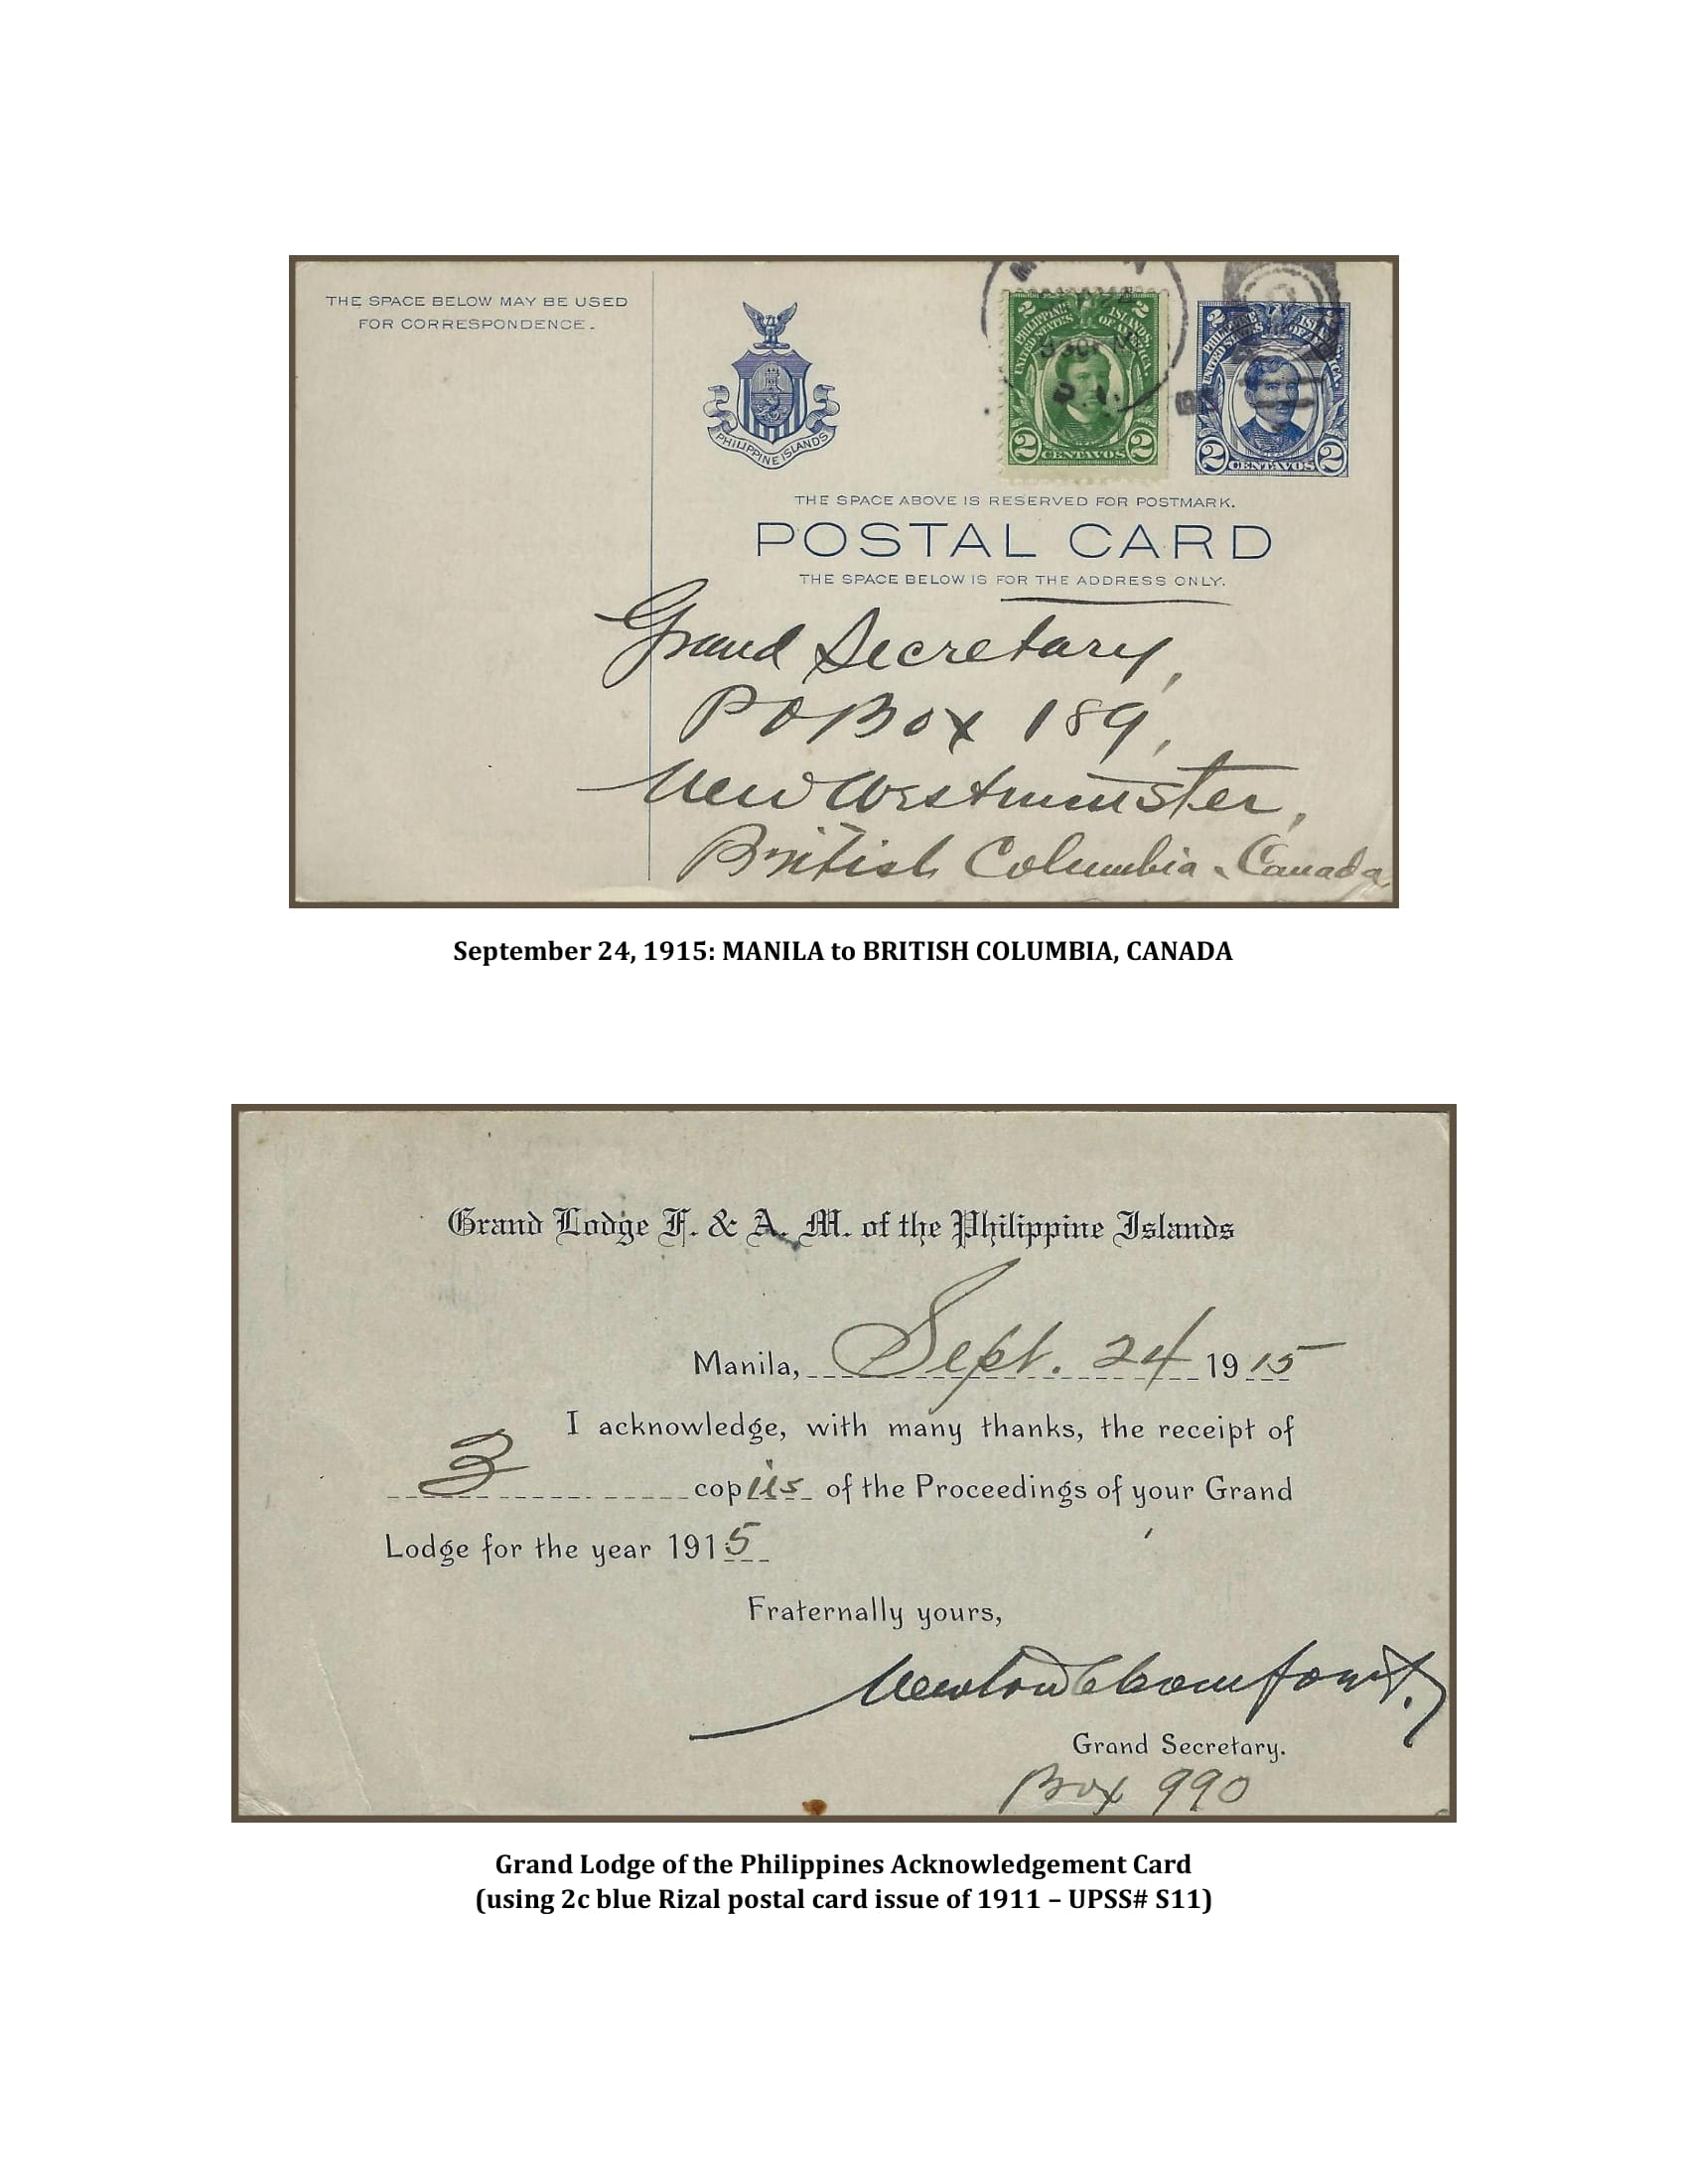 THE SPACE BELOW MAY BE USED
FOR CORRESPONDENCE.
PHILIPPINE ISLANDS
2 2
PHILIPPINE ISLANDS
UNITED STATES OF AMERICA
2 CENTAVOS 2
2
PHILIPPINE ISLANDS
UNITED STATES OF AMERICA
2 CENTAVOS 2
THE SPACE ABOVE IS RESERVED FOR POSTMARK.
POSTAL CARD
THE SPACE BELOW IS FOR THE ADDRESS ONLY.
Grand Secretary,
PO Box 189,
New Westminster,
British Columbia. Canada
September 24, 1915: MANILA to BRITISH COLUMBIA, CANADA
Grand Lodge F. & A. M. of the Philippine Islands
Manila, Sept. 24 1915
I acknowledge, with many thanks, the receipt of
3 copies of the Proceedings of your Grand
Lodge for the year 1915
Fraternally yours,
Newton C Comfort.
Grand Secretary.
Box 990
Grand Lodge of the Philippines Acknowledgement Card
(using 2c blue Rizal postal card issue of 1911 – UPSS# S11)